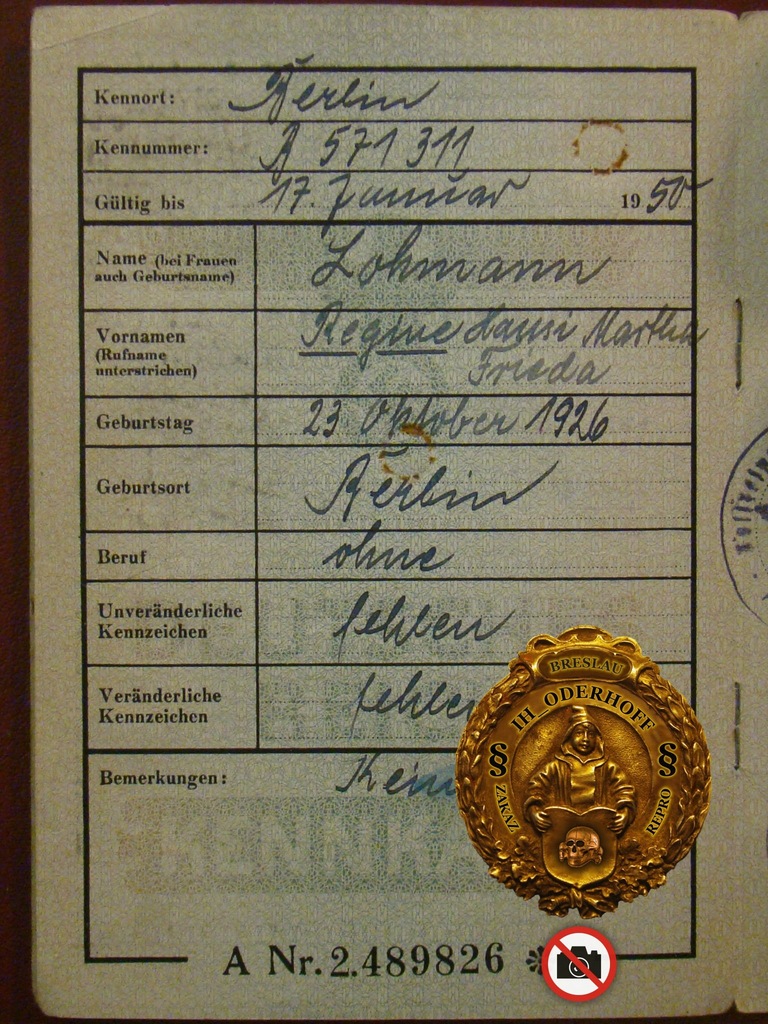 Kennort: Berlin
Kennummer: A 571 311
Gültig bis 17. Januar 1950
Name (bei Frauen
auch Geburtsname) Lohmann
Vornamen Regine Hansi Martha
(Rufname
unterstrichen) Frieda
Geburtstag 23 Oktober 1926
Geburtsort Berlin
Beruf ohne
Unveränderliche
Kennzeichen fehlen
Veränderliche
Kennzeichen fehlen
Bemerkungen: Kein
KENNKA
BRESLAU
IH ODERHOFF
§ §
ZAKAZ REPRO
A Nr. 2.489826 *